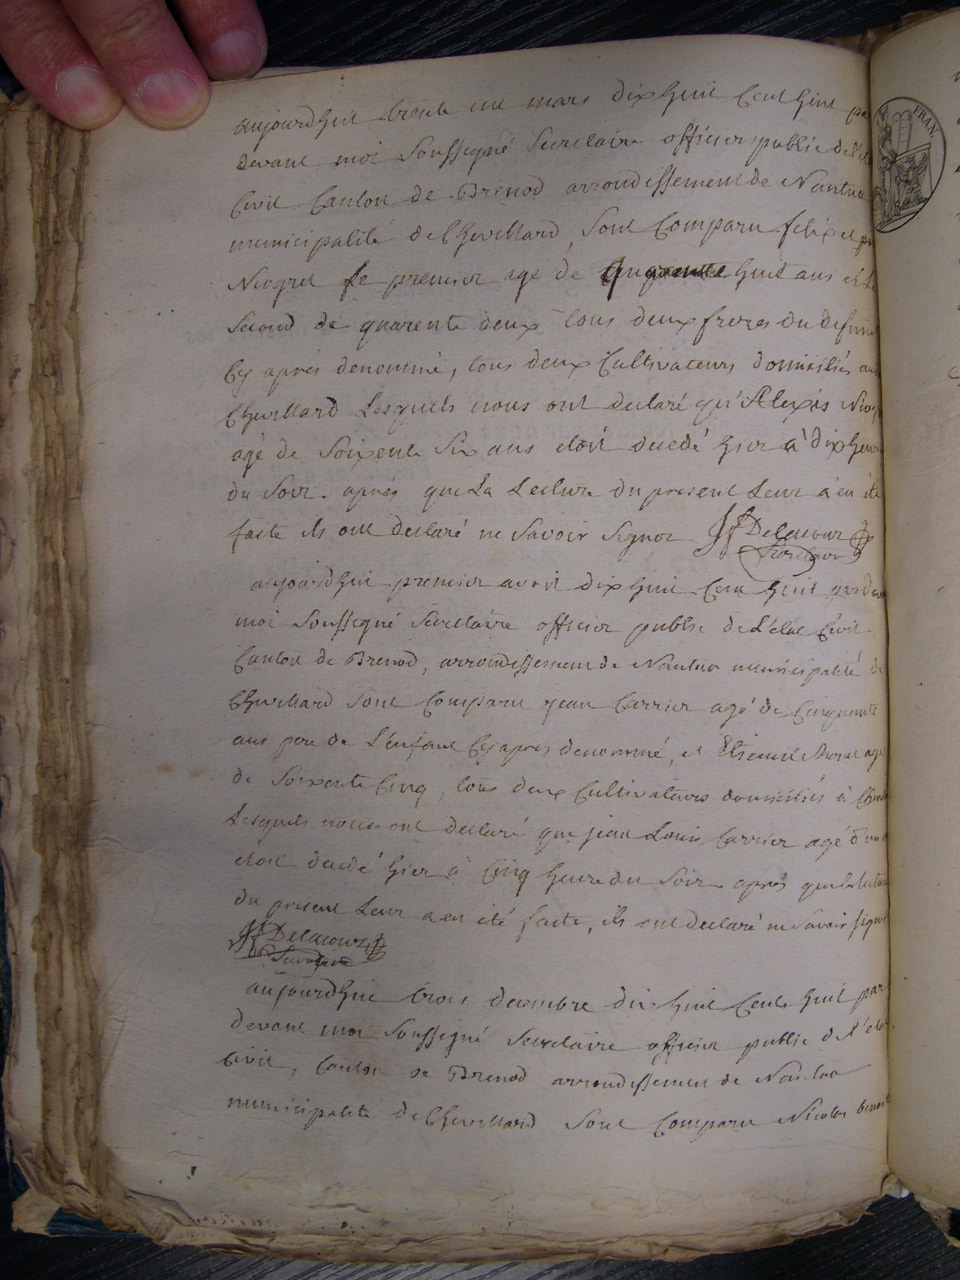 aujourdhui trente un mars dixhuit Cent huit par
devant moi Soussigné Secretaire officier public de l'état
Civil Canton de Brenod arrondissement de Nantua
municipalité de Chevillard, Sont Comparu felix et
Niogret le premier agé de quarente huit ans et Le
Second de quarente deux tous deux freres du defunt
Cy aprés denommé, tous deux Cultivateurs domiciliés au
Chevillard Lesquels nous ont declaré qu'Alexis Niogret
agé de Soixente Six ans etoit decedé hier a dix heures
du Soir. aprés que La Lecture du present Leur a en été
faite ils ont declaré ne Savoir Signer JfDelacour
aujourdhui premier avril dixhuit Cent huit pardevant
moi Soussigné Secretaire officier public de L'état Civil
Canton de Brenod, arrondissement de Nantua municipalité de
Chevillard Sont Comparu jean Carrier agé de Cinquante
ans pere de L'enfant Cy apres denommé, et Etienne agé
de Soixente Cinq, tous deux Cultivateurs domiciliés à
Lesquels nous ont declaré que jean Louis Carrier agé d'un
etoit decedé hier à Cinq heure du Soir. aprés que la lecture
du present Leur a en été faite, ils ont declaré ne Savoir signer
JfDelacour
aujourdhui trois decembre dix huit Cent huit par
devant moi Soussigné Secretaire officier public de l'état
Civil, Canton de Brenod arrondissement de Nantua
municipalité de Chevillard Sont Comparu Nicolas benoit
FRAN.